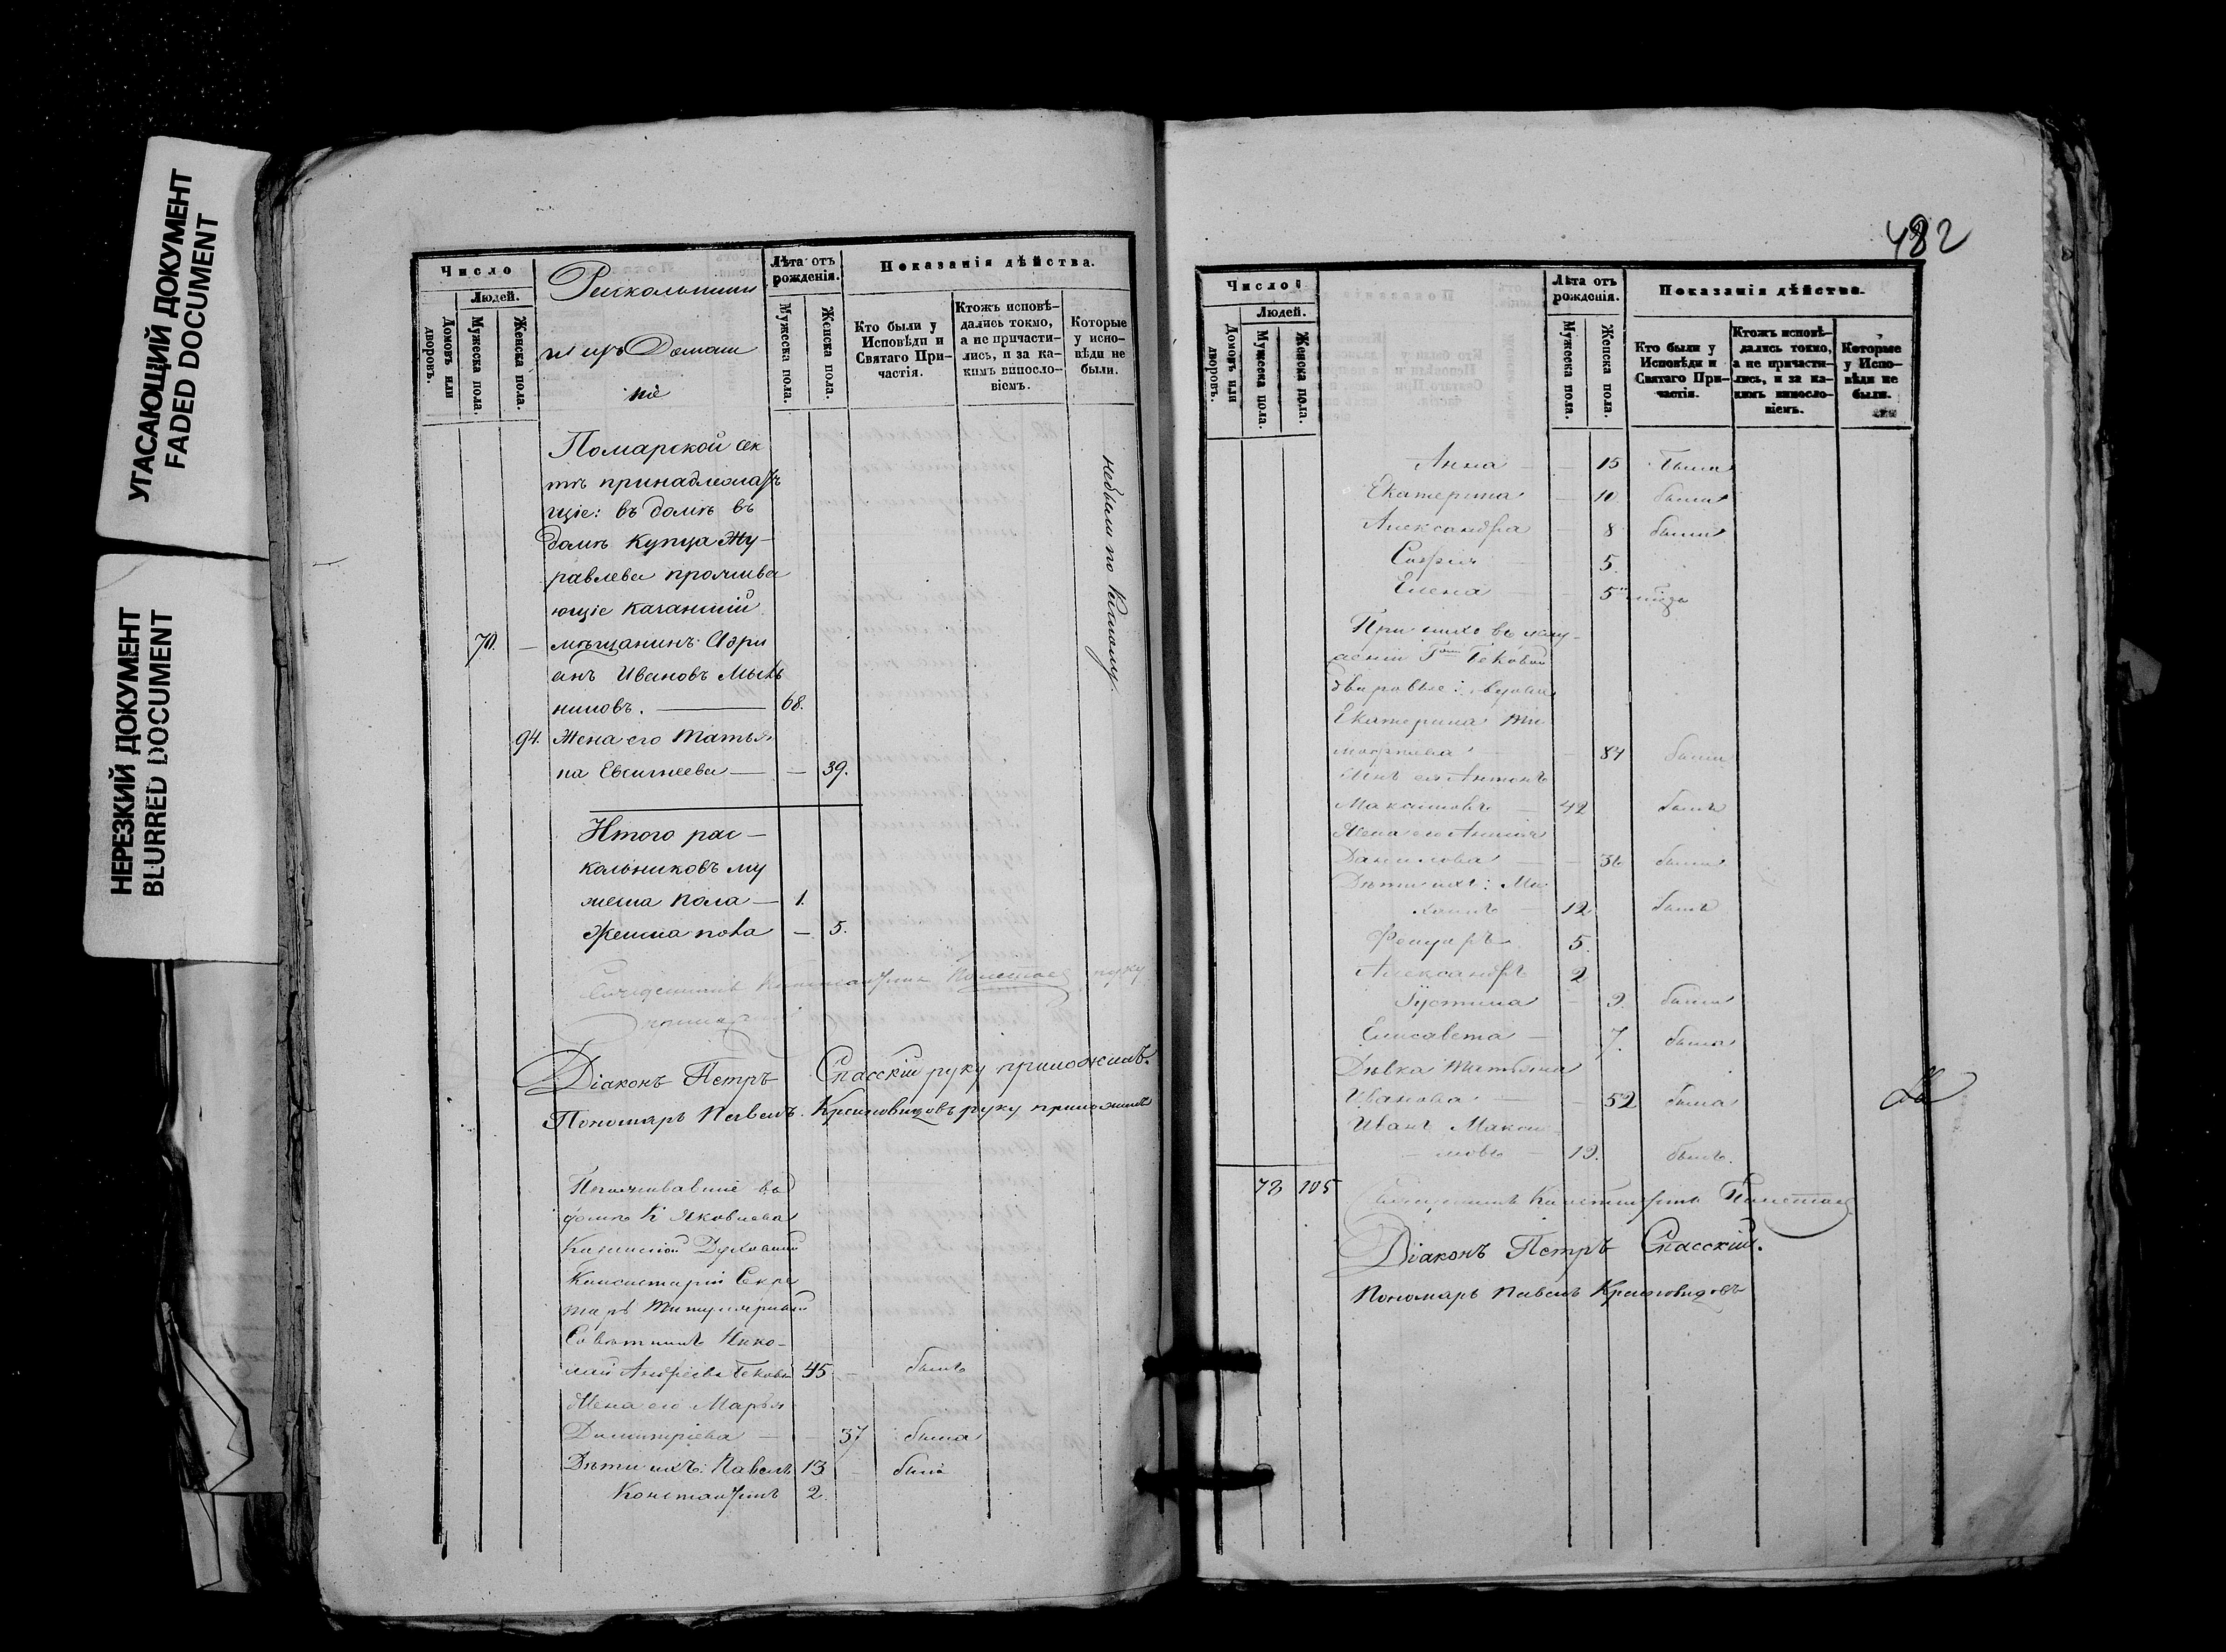 УГАСАЮЩИЙ ДОКУМЕНТ
FADED DOCUMENT
НЕРЕЗКИЙ ДОКУМЕНТ
BLURRED DOCUMENT
Число
Людей.
Домовъ или дворовъ.
Мужеска пола.
Женска пола.
Раскольники
и ихъ Домаш
ніе
Лѣта отъ рожденія.
Мужеска пола.
Женска пола.
Показанія дѣйства.
Кто были у Исповѣди и Святаго При-частія.
Ктожъ исповѣ-дались токмо, а не причасти-лись, и за ка-кимъ винословіемъ.
Которые у испо-вѣди не были.
Поморской сек
тѣ принадлежа
щіе: въ домѣ въ
домѣ купца Жу-
равлева прожива
ющіе казанскій
70. — мѣщанинъ Адри
анъ Ивановъ Мыль
никовъ. — 68.
94. Жена его Татья
на Евсигнеева — — 39.
небыли по расколу.
Итого рас-
кольниковъ му
жеска пола — 1.
Женска пола — 5.
Священникъ Константинъ руку
Діаконъ Петръ Спасскій руку приложилъ.
Пономарь Павелъ Красновидовъ руку приложилъ
Проживавшіе въ
домѣ К Яковлева
Казанской Духовной
Консисторіи Секре
тарь Титулярный
Совѣтникъ Нико-
лай Андреевъ Бековъ 45 — былъ
Жена его Марья
Димитріева — — 37 была
Дѣти ихъ: Павелъ 13 — былъ
Константинъ 2.
482
Число
Людей.
Домовъ или дворовъ.
Мужеска пола.
Женска пола.
Лѣта отъ рожденія.
Мужеска пола.
Женска пола.
Показанія дѣйства.
Кто были у Исповѣди и Святаго При-частія.
Ктожъ исповѣ-дались токмо, а не причасти-лись, и за ка-кимъ винословіемъ.
Которые у Испо-вѣди не были.
Анна — — 15 была
Екатерина — 10. была
Александра — 8 была
Софія — 5.
Елена — — 5
При нихъ въ услу-
женіи Бековой
дворовые: вдова
Екатерина Ти
моѳеева — — 84 была
Сынъ ея Антонъ
Максимовъ — 42 былъ
Жена его Анисья
Данилова — — 36 была
Дѣти ихъ: Ми
хаилъ — 12 былъ
Феодоръ 5.
Александръ 2
Іустина — 9. была
Елисавета — 7. была
Дѣвка Татьяна
Иванова — — 52 была
Иванъ Макси
мовъ — 19. былъ.
78 105
Священникъ Константинъ
Діаконъ Петръ Спасскій.
Пономарь Павелъ Красновидовъ